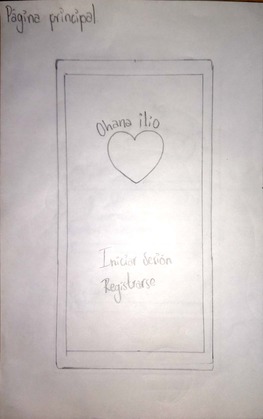 Página principal
Ohana ilio
Iniciar Sesión
Registrarse